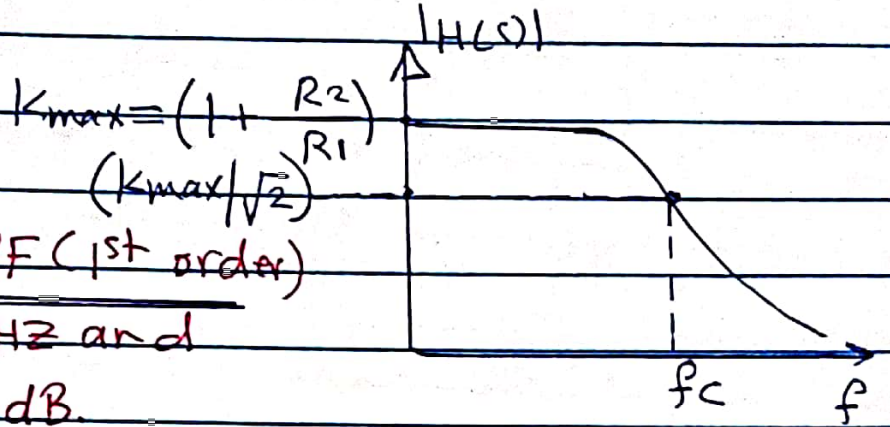 |H(S)|
Kmax = (1 + R2/R1)
(Kmax/√2)
F (1st order)
HZ and
dB.
fc
f